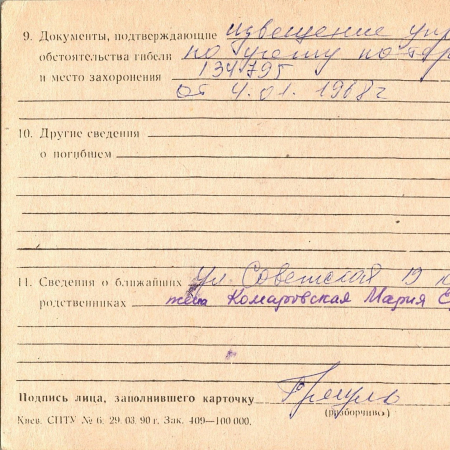 9. Документы, подтверждающие извещение упр
обстоятельства гибели по учету потерь
и место захоронения 134795
от 4.01.1968г
10. Другие сведения
о погибшем
11. Сведения о ближайших ул Советская 19 к
родственниках жена Комаровская Мария Е
Подпись лица, заполнившего карточку
(разборчиво)
Киев. СПТУ № 6. 29. 03. 90 г. Зак. 409—100 000.